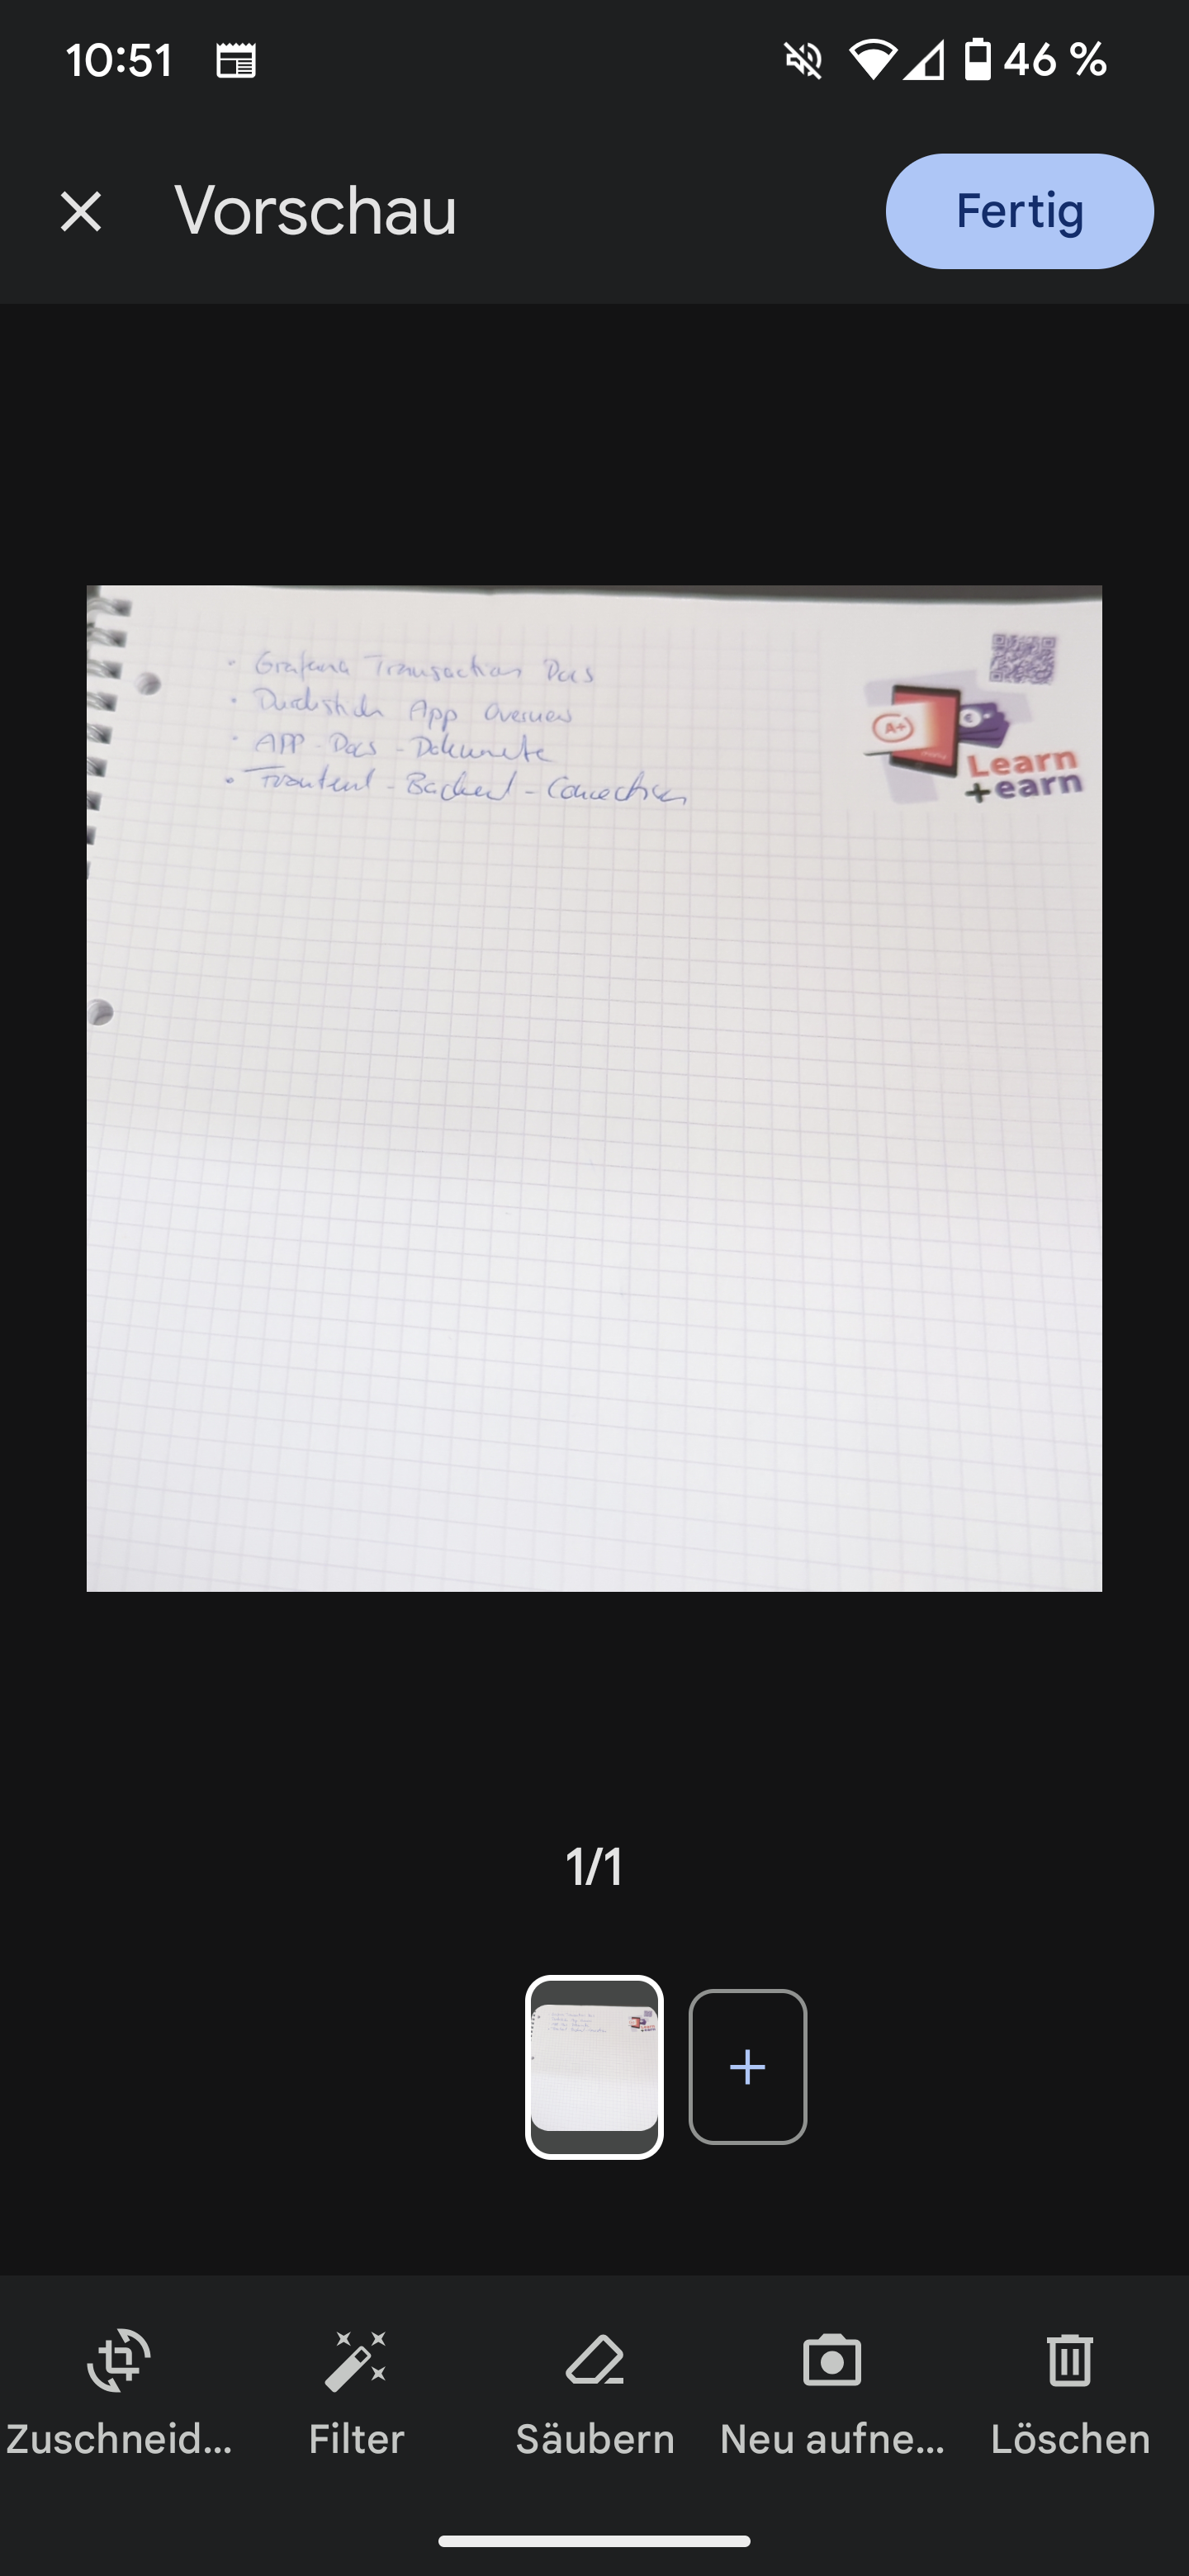 10:51
46 %
Vorschau
Fertig
• Grafana Transaction Docs
• Durchstich App Overview
• APP - Docs - Dokumente
• Frontend - Backend - Connection
A+
€
Learn
+earn
1/1
+
Zuschneid...
Filter
Säubern
Neu aufne...
Löschen